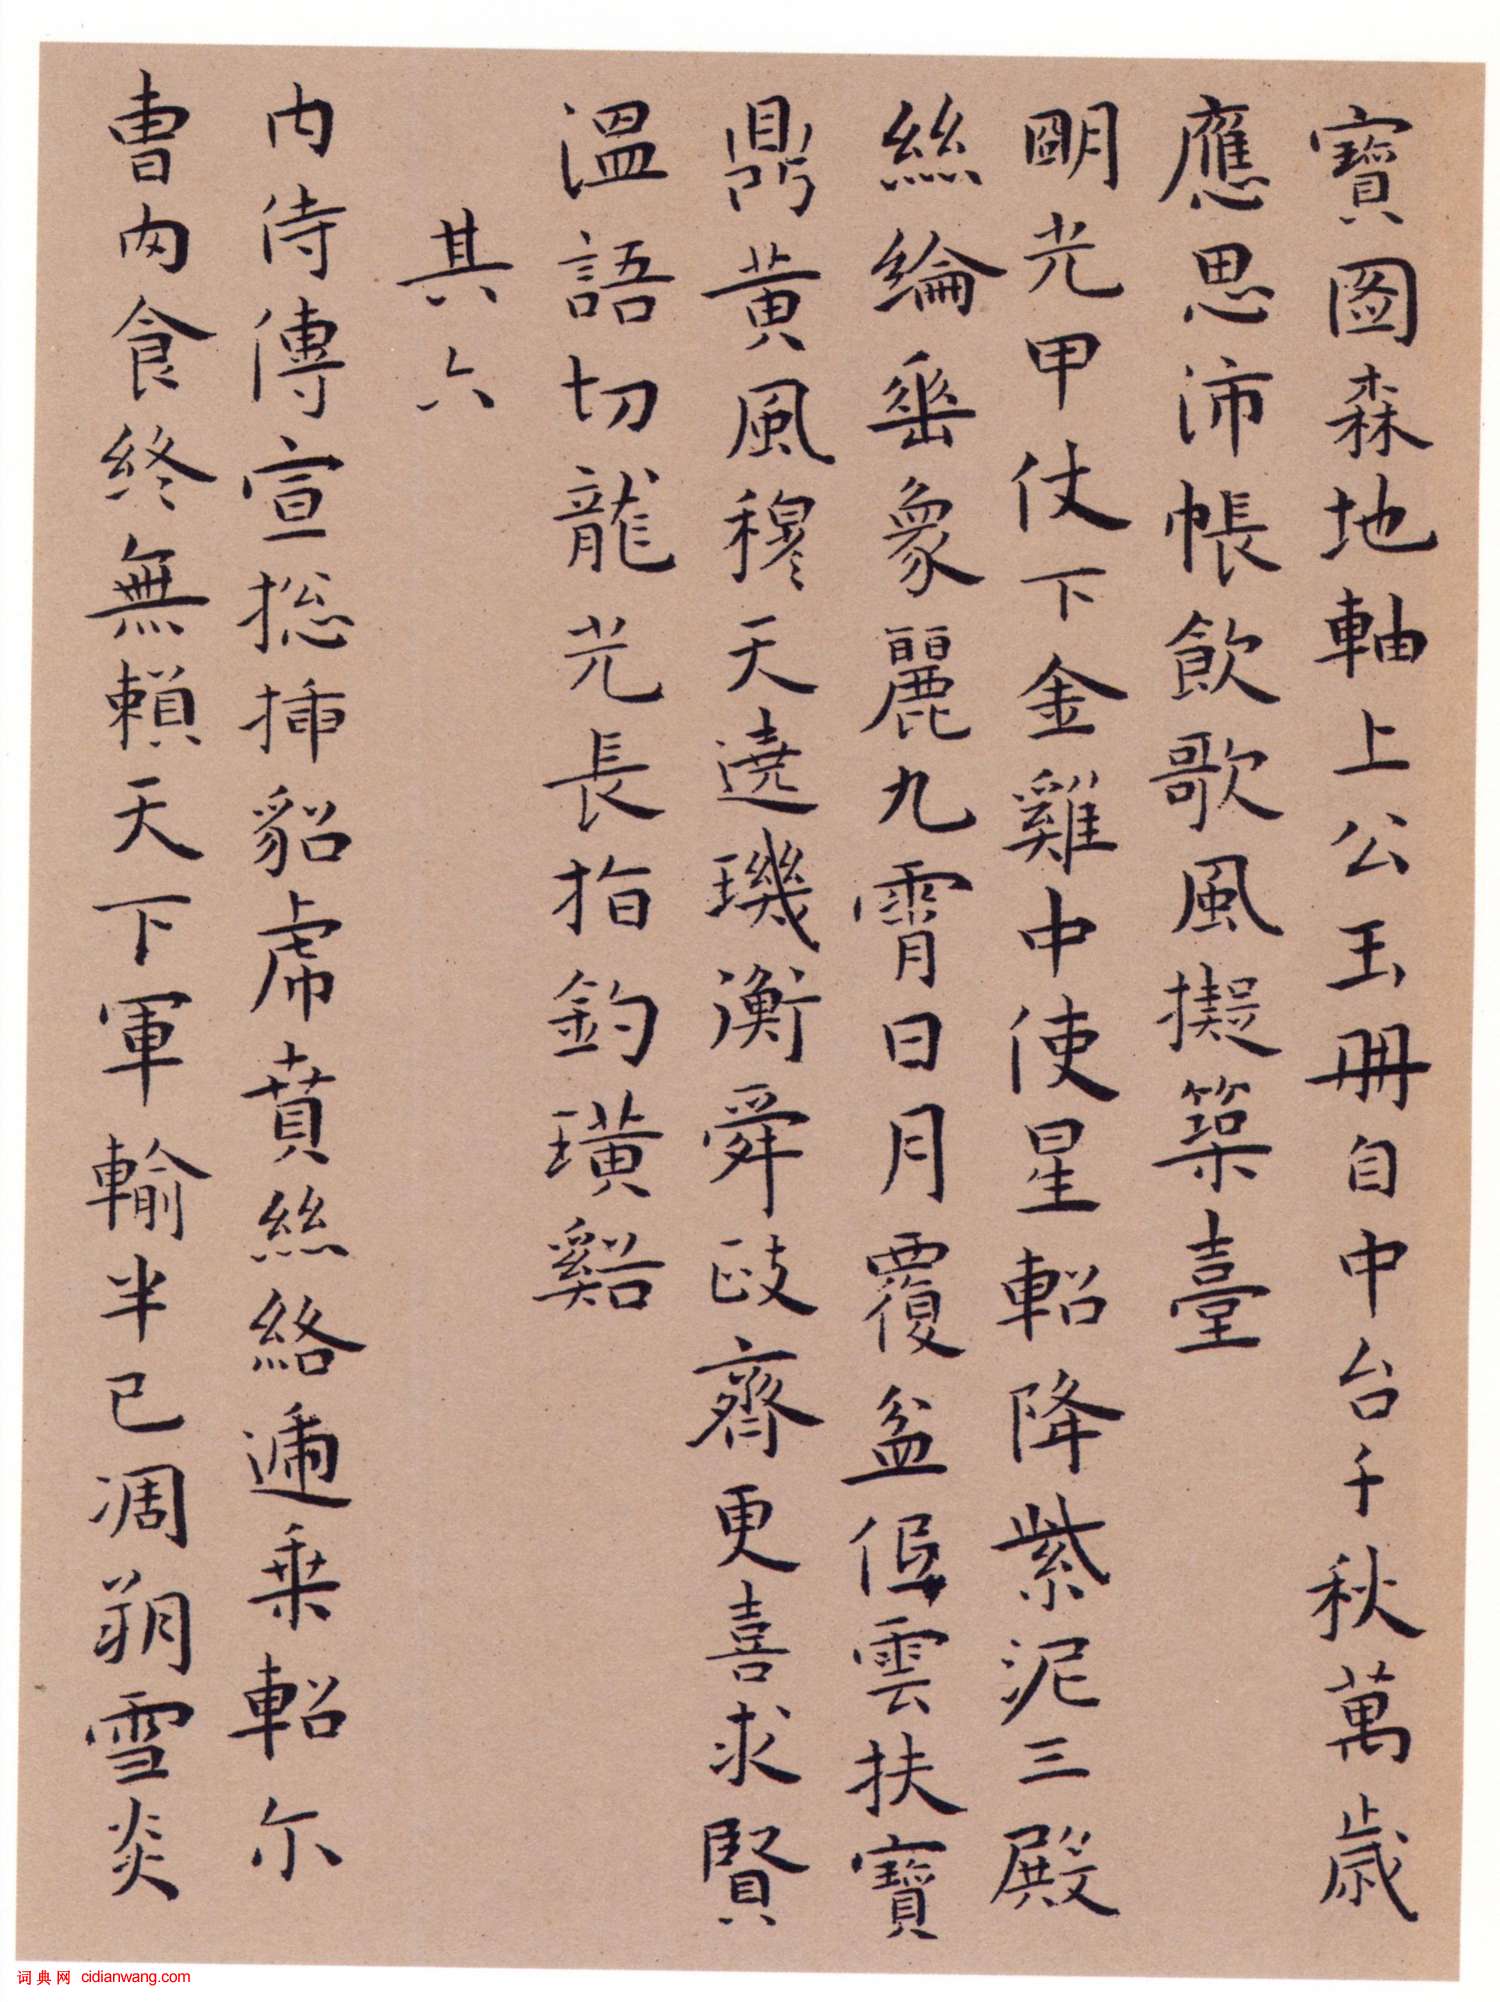 寶圖森地軸上公玉冊自中台千秋萬歲
應思沛帳飲歌風擬築臺
明光甲仗下金雞中使星軺降紫泥三殿
絲綸垂象麗九霄日月覆盆低雲扶寶
鼎黃風穆天遶璣衡舜政齊更喜求賢
溫語切龍光長指釣璜谿
其六
內侍傳宣捴插貂虎賁絲絡遞乘軺尔
曹肉食終無賴天下軍輸半已凋朔雪炎
词典网 cidianwang.com